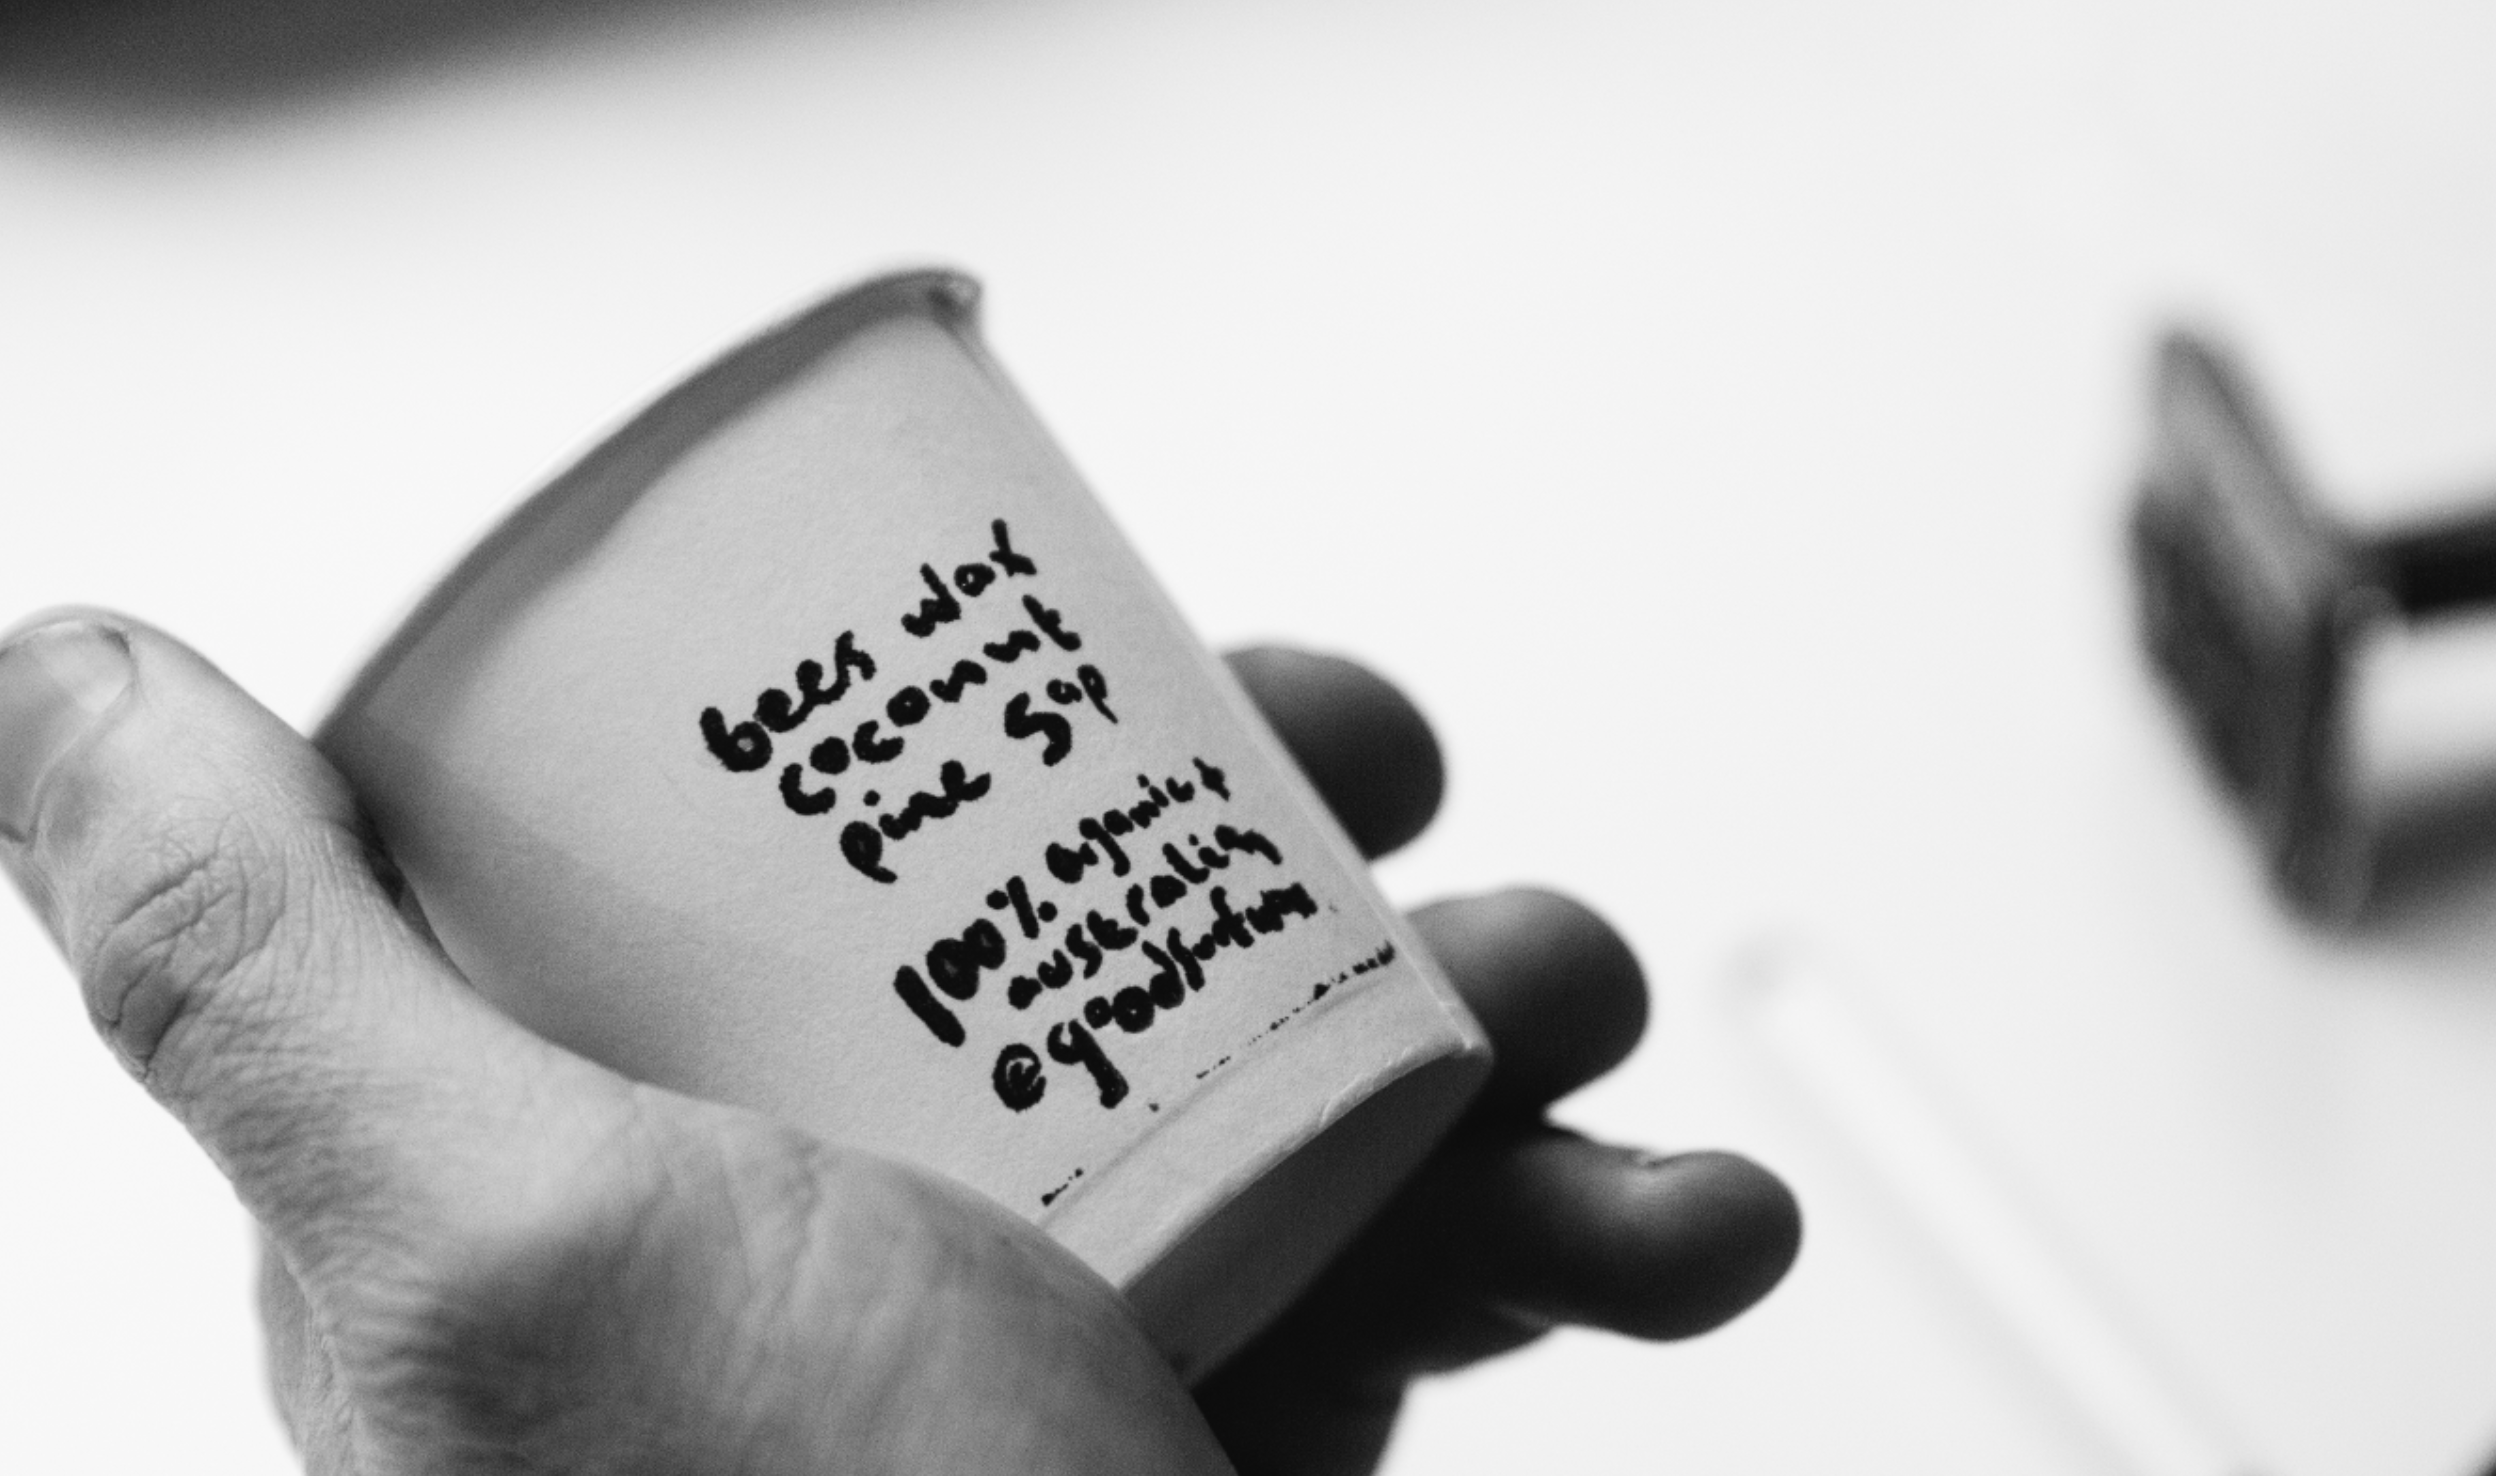 bees wax
coconut
pine sap
100% organic +
australian
@goodsurfwax